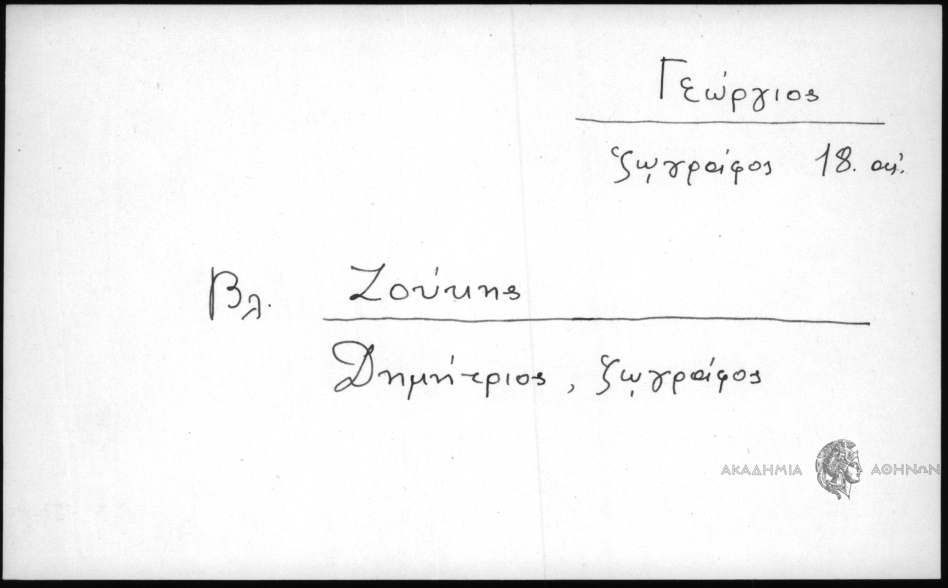 Γεώργιος
ζῳγράφος 18. αἰ.
Βλ. Ζούκης
Δημήτριος, ζῳγράφος
ΑΚΑΔΗΜΙΑ ΑΘΗΝΩΝ